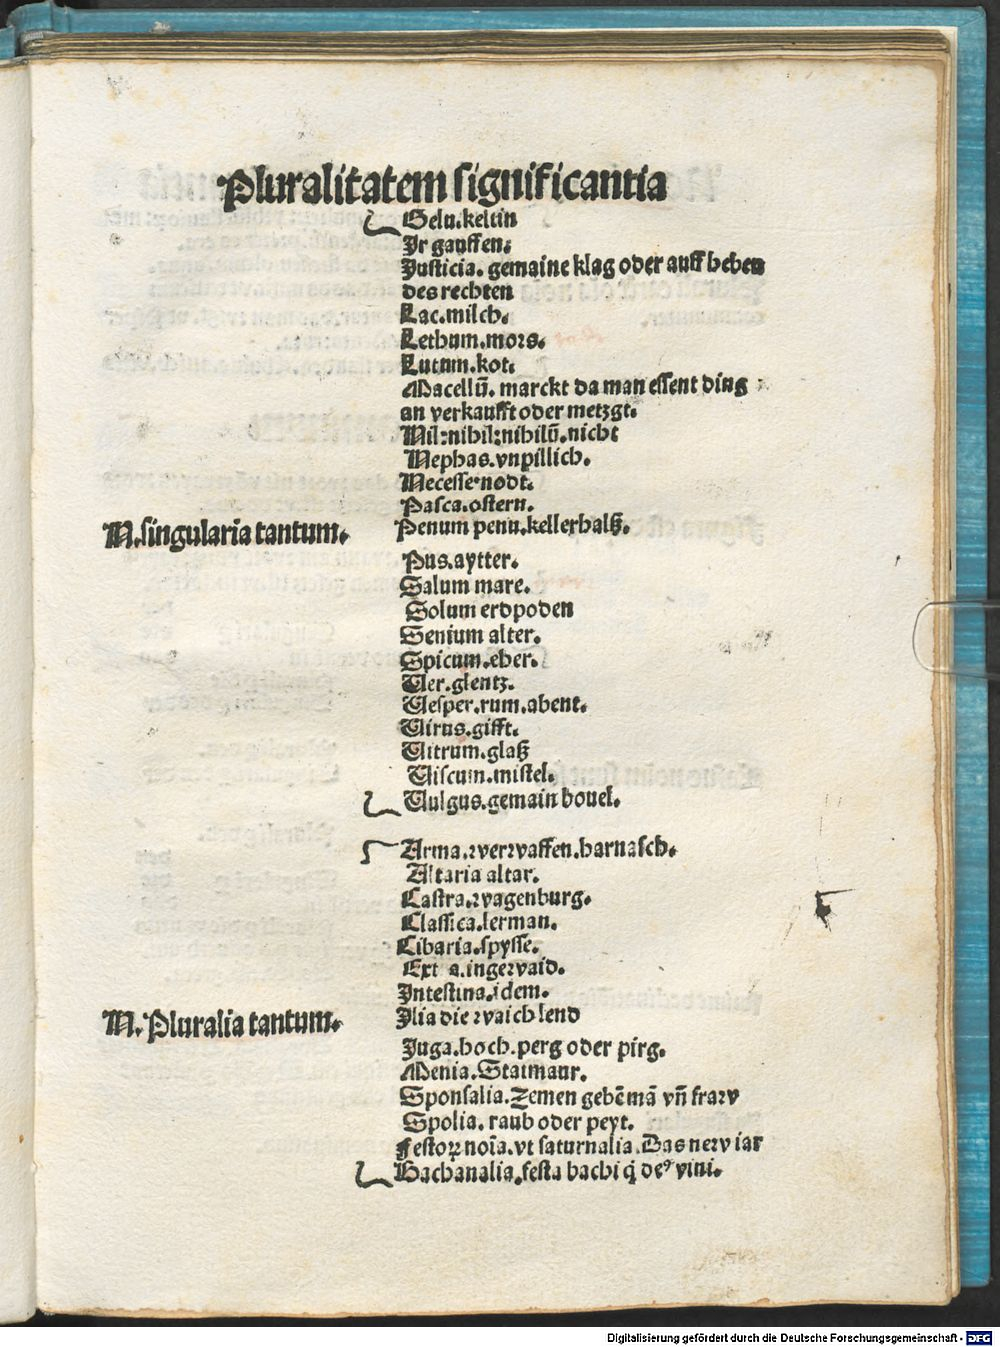 Pluralitatem significantia
Gelu.keltin
Ir gauffen.
Justicia. gemaine klag oder auff heben
des rechten
Lac.milch.
Lethum.mors.
Lutum.kot.
Macellū. marckt da man essent ding
an verkaufft oder metzgt.
Nil:nihil:nihilū.nicht
Nephas.vnpillich.
Necesse.nodt.
Pasca.ostern.
N.singularia tantum.
Penum penu.kellerhalß.
Pus.aytter.
Salum mare.
Solum erdpoden
Senium alter.
Spicum.eher.
Ver.glentz.
Vesper.rum.abent.
Virus.gifft.
Vitrum.glaß
Viscum.mistel.
Vulgus.gemain hovel.
Arma.werwaffen.harnasch.
Altaria altar.
Castra.wagenburg.
Classica.lerman.
Cibaria.spysse.
Ext a.ingewaid.
Intestina.idem.
N.Pluralia tantum.
Ilia die waich lend
Juga.hoch.perg oder pirg.
Menia.Statmaur.
Sponsalia.Zemen gebē mā vñ fraw
Spolia. raub oder peyt.
Festoꝝ noīa.vt saturnalia.Das new iar
Bachanalia.festa bachi q̇ deꝰ vini.
Digitalisierung gefördert durch die Deutsche Forschungsgemeinschaft - DFG